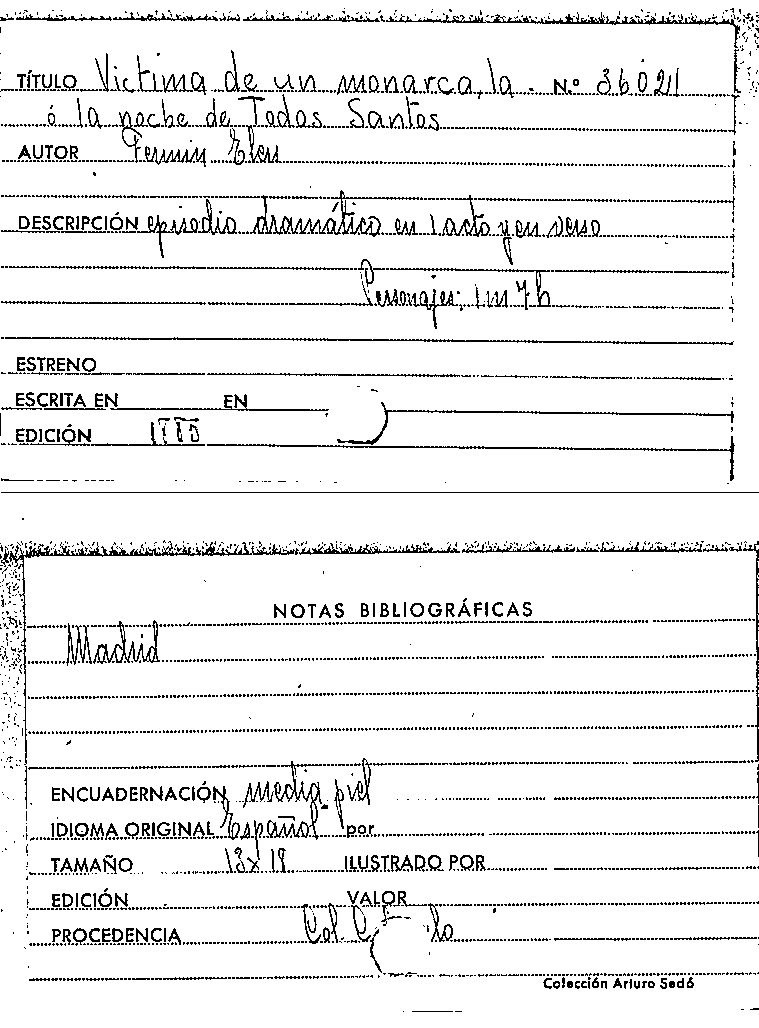 TÍTULO Victima de un monarca, la . N.º 36021
ó la noche de Todos Santos
AUTOR Fermin
DESCRIPCIÓN episodio dramático en 1 acto y en verso
Personajes: 1 m 7 h
ESTRENO
ESCRITA EN EN
EDICIÓN
NOTAS BIBLIOGRÁFICAS
Madrid
ENCUADERNACIÓN media piel
IDIOMA ORIGINAL Español por
TAMAÑO 13x19 ILUSTRADO POR
EDICIÓN VALOR
PROCEDENCIA Col
Colección Arturo Sedó